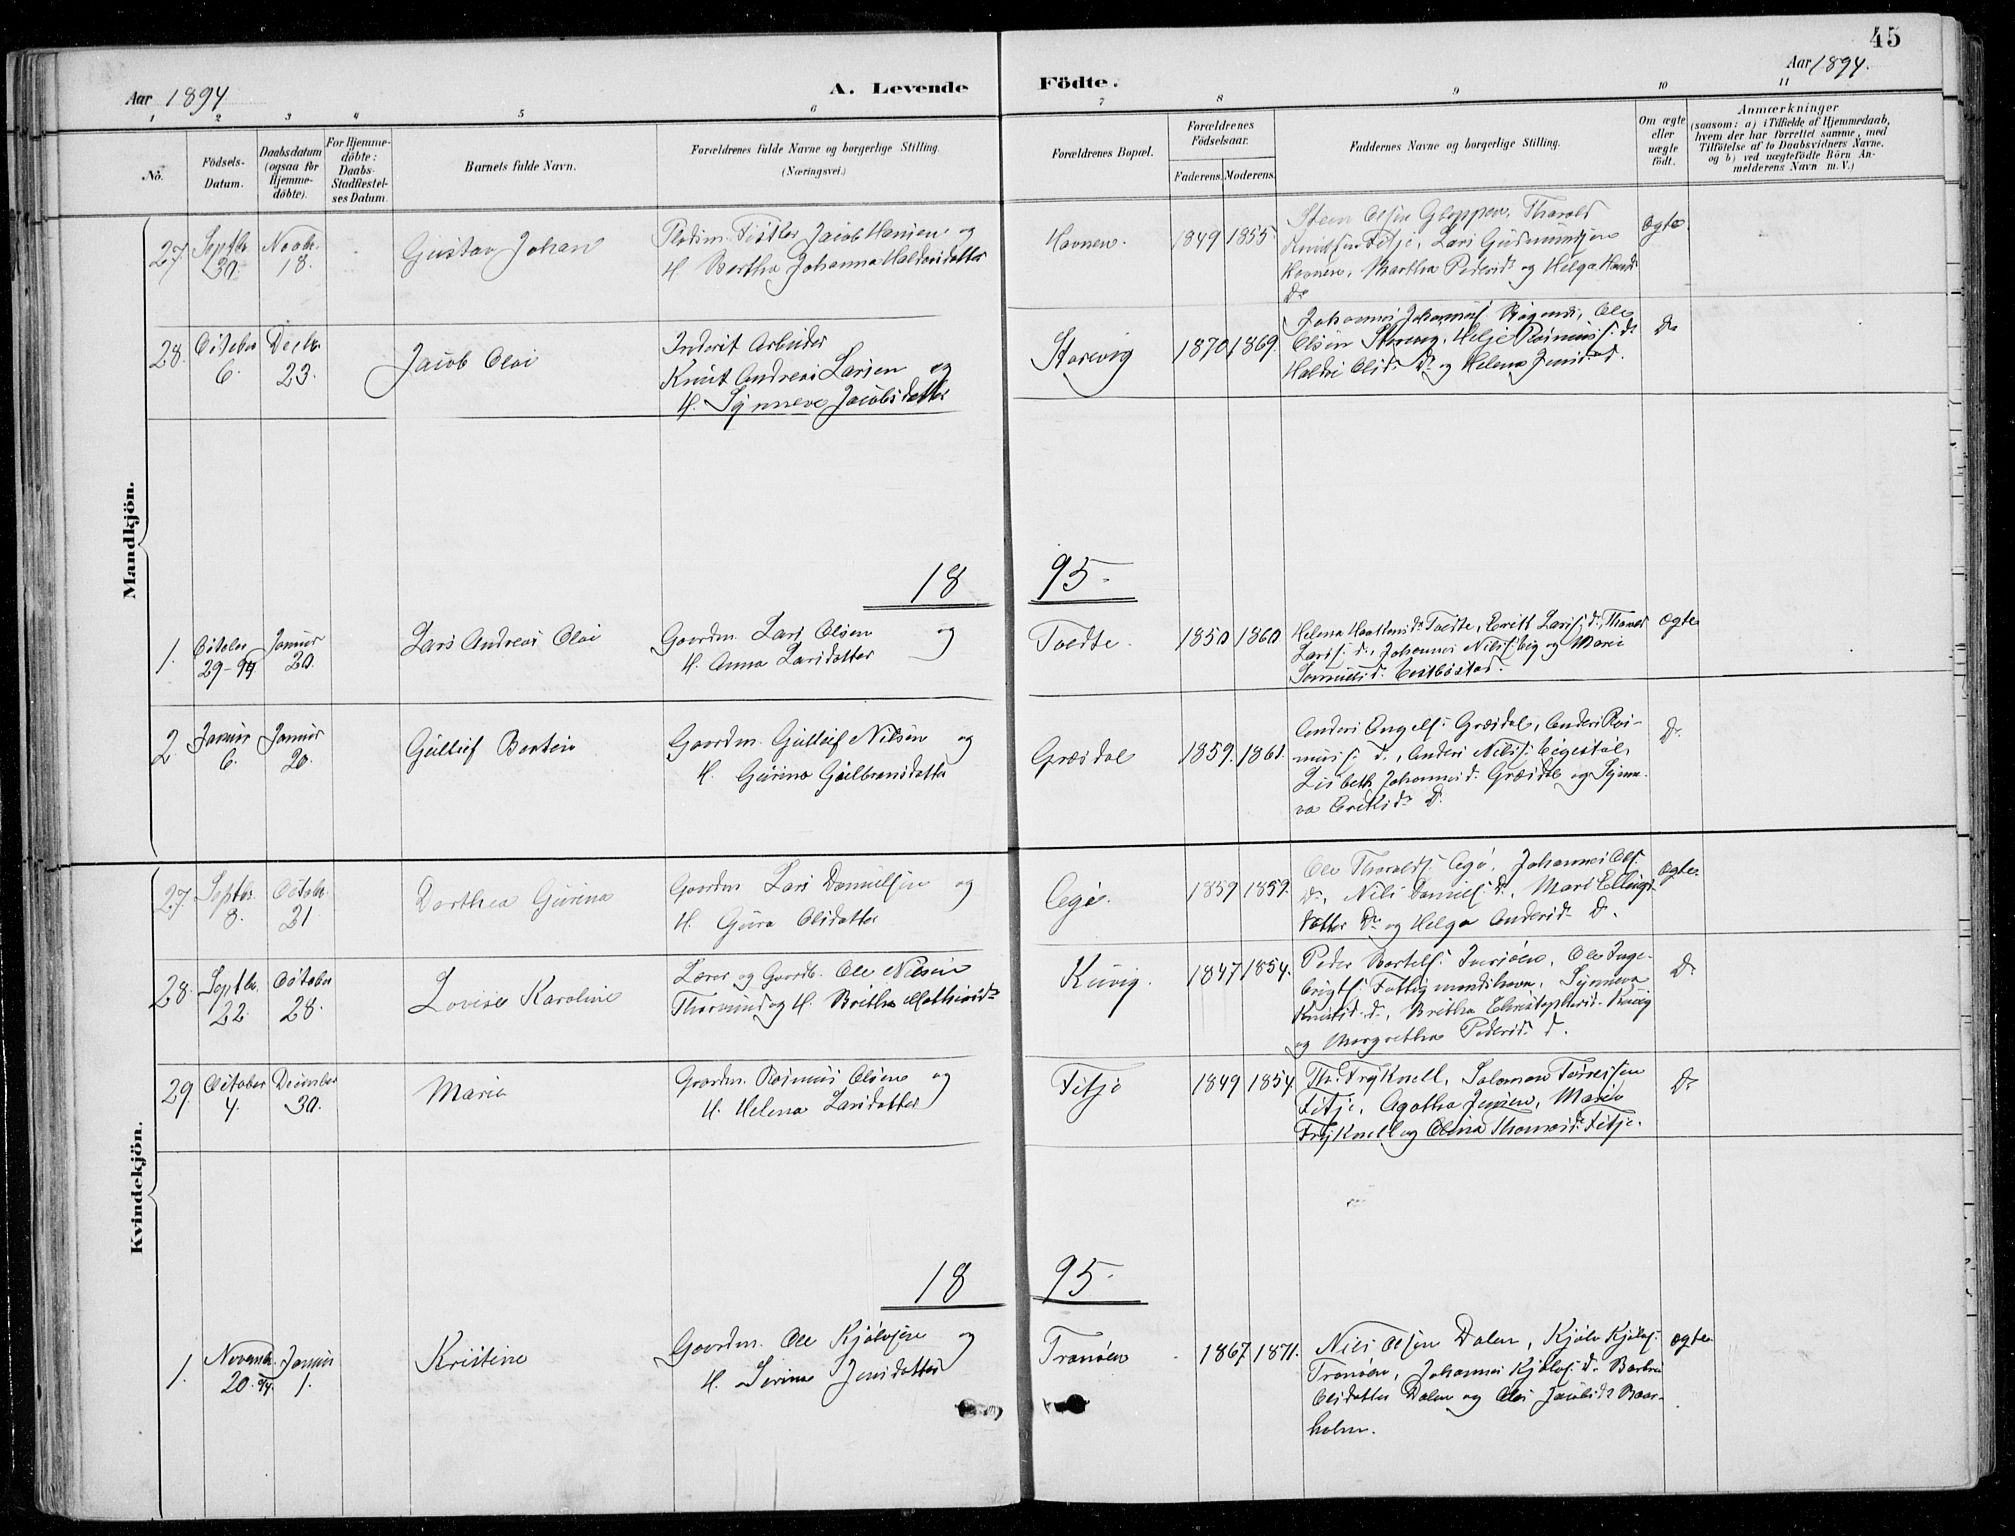 45
Aar 1894
A. Levende
Födte.
Aar 1894.
1 2 3 4 5 6 7 8 9 10 11
No.
Födsels-
Datum.
Daabsdatum
(ogsaa for
Hjemme-
döbte).
For Hjemme-
döbte:
Daabs-
Stadfæstel-
ses Datum.
Barnets fulde Navn.
Forældrenes fulde Navne og borgerlige Stilling.
(Næringsvei.)
Forældrenes Bopæl.
Forældrenes
Födselsaar.
Faderens. Moderens.
Faddernes Navne og borgerlige Stilling.
Om ægte
eller
uægte
födt.
Anmærkninger
(saasom: a) i Tilfælde af Hjemmedaab,
hvem der har forrettet samme, med
Tilföielse af to Daabsvidners Navne.
og b) ved uægtefödte Börn An-
melderens Navn m. V.)
Mandkjön.
27. Septbr. 30. Novbr. 18.
Gustav Johan
Jacob Hansen og
H. Bertha Johanna Haldorsdatter
Havnen.
1849 1855.
Steen Olsen Gloppen, Tharald
Knudsen Fitje, Lars Gudmundsen
Havnen, Martha Pedersd. og Helga Hansd.
Do
Ægte
28. Octeber 6. Decbr. 23.
Jacob Olai
Inderst Arbeider
Knut Andreas Larsen og
H. Synneve Jacobsdatter
Storevig
1870 1869.
Johannes Johannes Olsen Storevig, Helje Rasmuss. do
Olsd. Do og Helena Jensd. d.
Do
18 95.
1. October 29-94 Januar 20.
Lars Andreas Olai
Gaardm. Lars Olsen og
H. Anna Larsdatter
Toedte.
1850 1860
Helena Haakonsd. Toedte, Erik Larss. d., Thomas
Larss. d., Johannes Nilss. Eig og Marie
Samuelsd.
Ægte
2 Januar 6. Januar 20.
Gullief Bertin
Gaardm. Gullief Nilsen og
H. Gurine Gulbransdatter
Græsdal
1859. 1861.
Anders Ingels. Græsdal, Anders Ras-
muss. d., Anders Nilss. Eigestøl,
Lisbeth Johannesd. Græsdal og Synne-
va Eriksd. D.
D.
Kvindekjön.
27. Septbr. 8. Octobr. 21
Dorthea Gurine
Gaardm. Lars Danielsen og
H. Gura Olsdatter
1859 1859.
Ole Tharalds. Johannes Ols.
D., Nils Daniels. d., Mari Ellings-
datter Do og Helga Andersd. D.
Ægte
28. Septbr. 22. October 28.
Lovise Karoline
Lærer og Gaardb. Ole Nilsen
Thorsund og H. Britha Mathiasd.
Kuvig.
1847 1854.
Peder Bartels. Ole Inge-
brigts. Fattigmandshavn, Synneva
Knudsd. d., Britha Christophersd. Kuvig
og Margretha Pedersd. d.
D.
29. October 4. December 30.
Maria
Gaardm. Rasmus Olsen og
H. Helena Larsdatter
Fitje
1849 1854
Th. Fryknell, Salomon Torressen
Fitje, Agatha Jensen, Marie
Fryknell og Olina Thomasd. Fitje.
D.
18 95.
1. Novembr. 20. 94. Januar 1.
Kristine
Gaardm. Ole Kjølvsen og
H. Serina Jensdatter
Tranøen
1867 1871.
Nils Olsen Dalen, Kjølv Kjølvs.
Tranøen, Johannes Kjølvs. d. Barbra
Olsdatter Dalen og Jacobsd. Baar-
holm.
Ægte